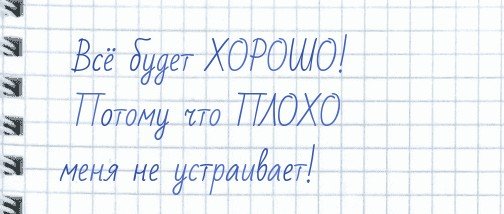 Всё будет ХОРОШО!
Потому что ПЛОХО
меня не устраивает!